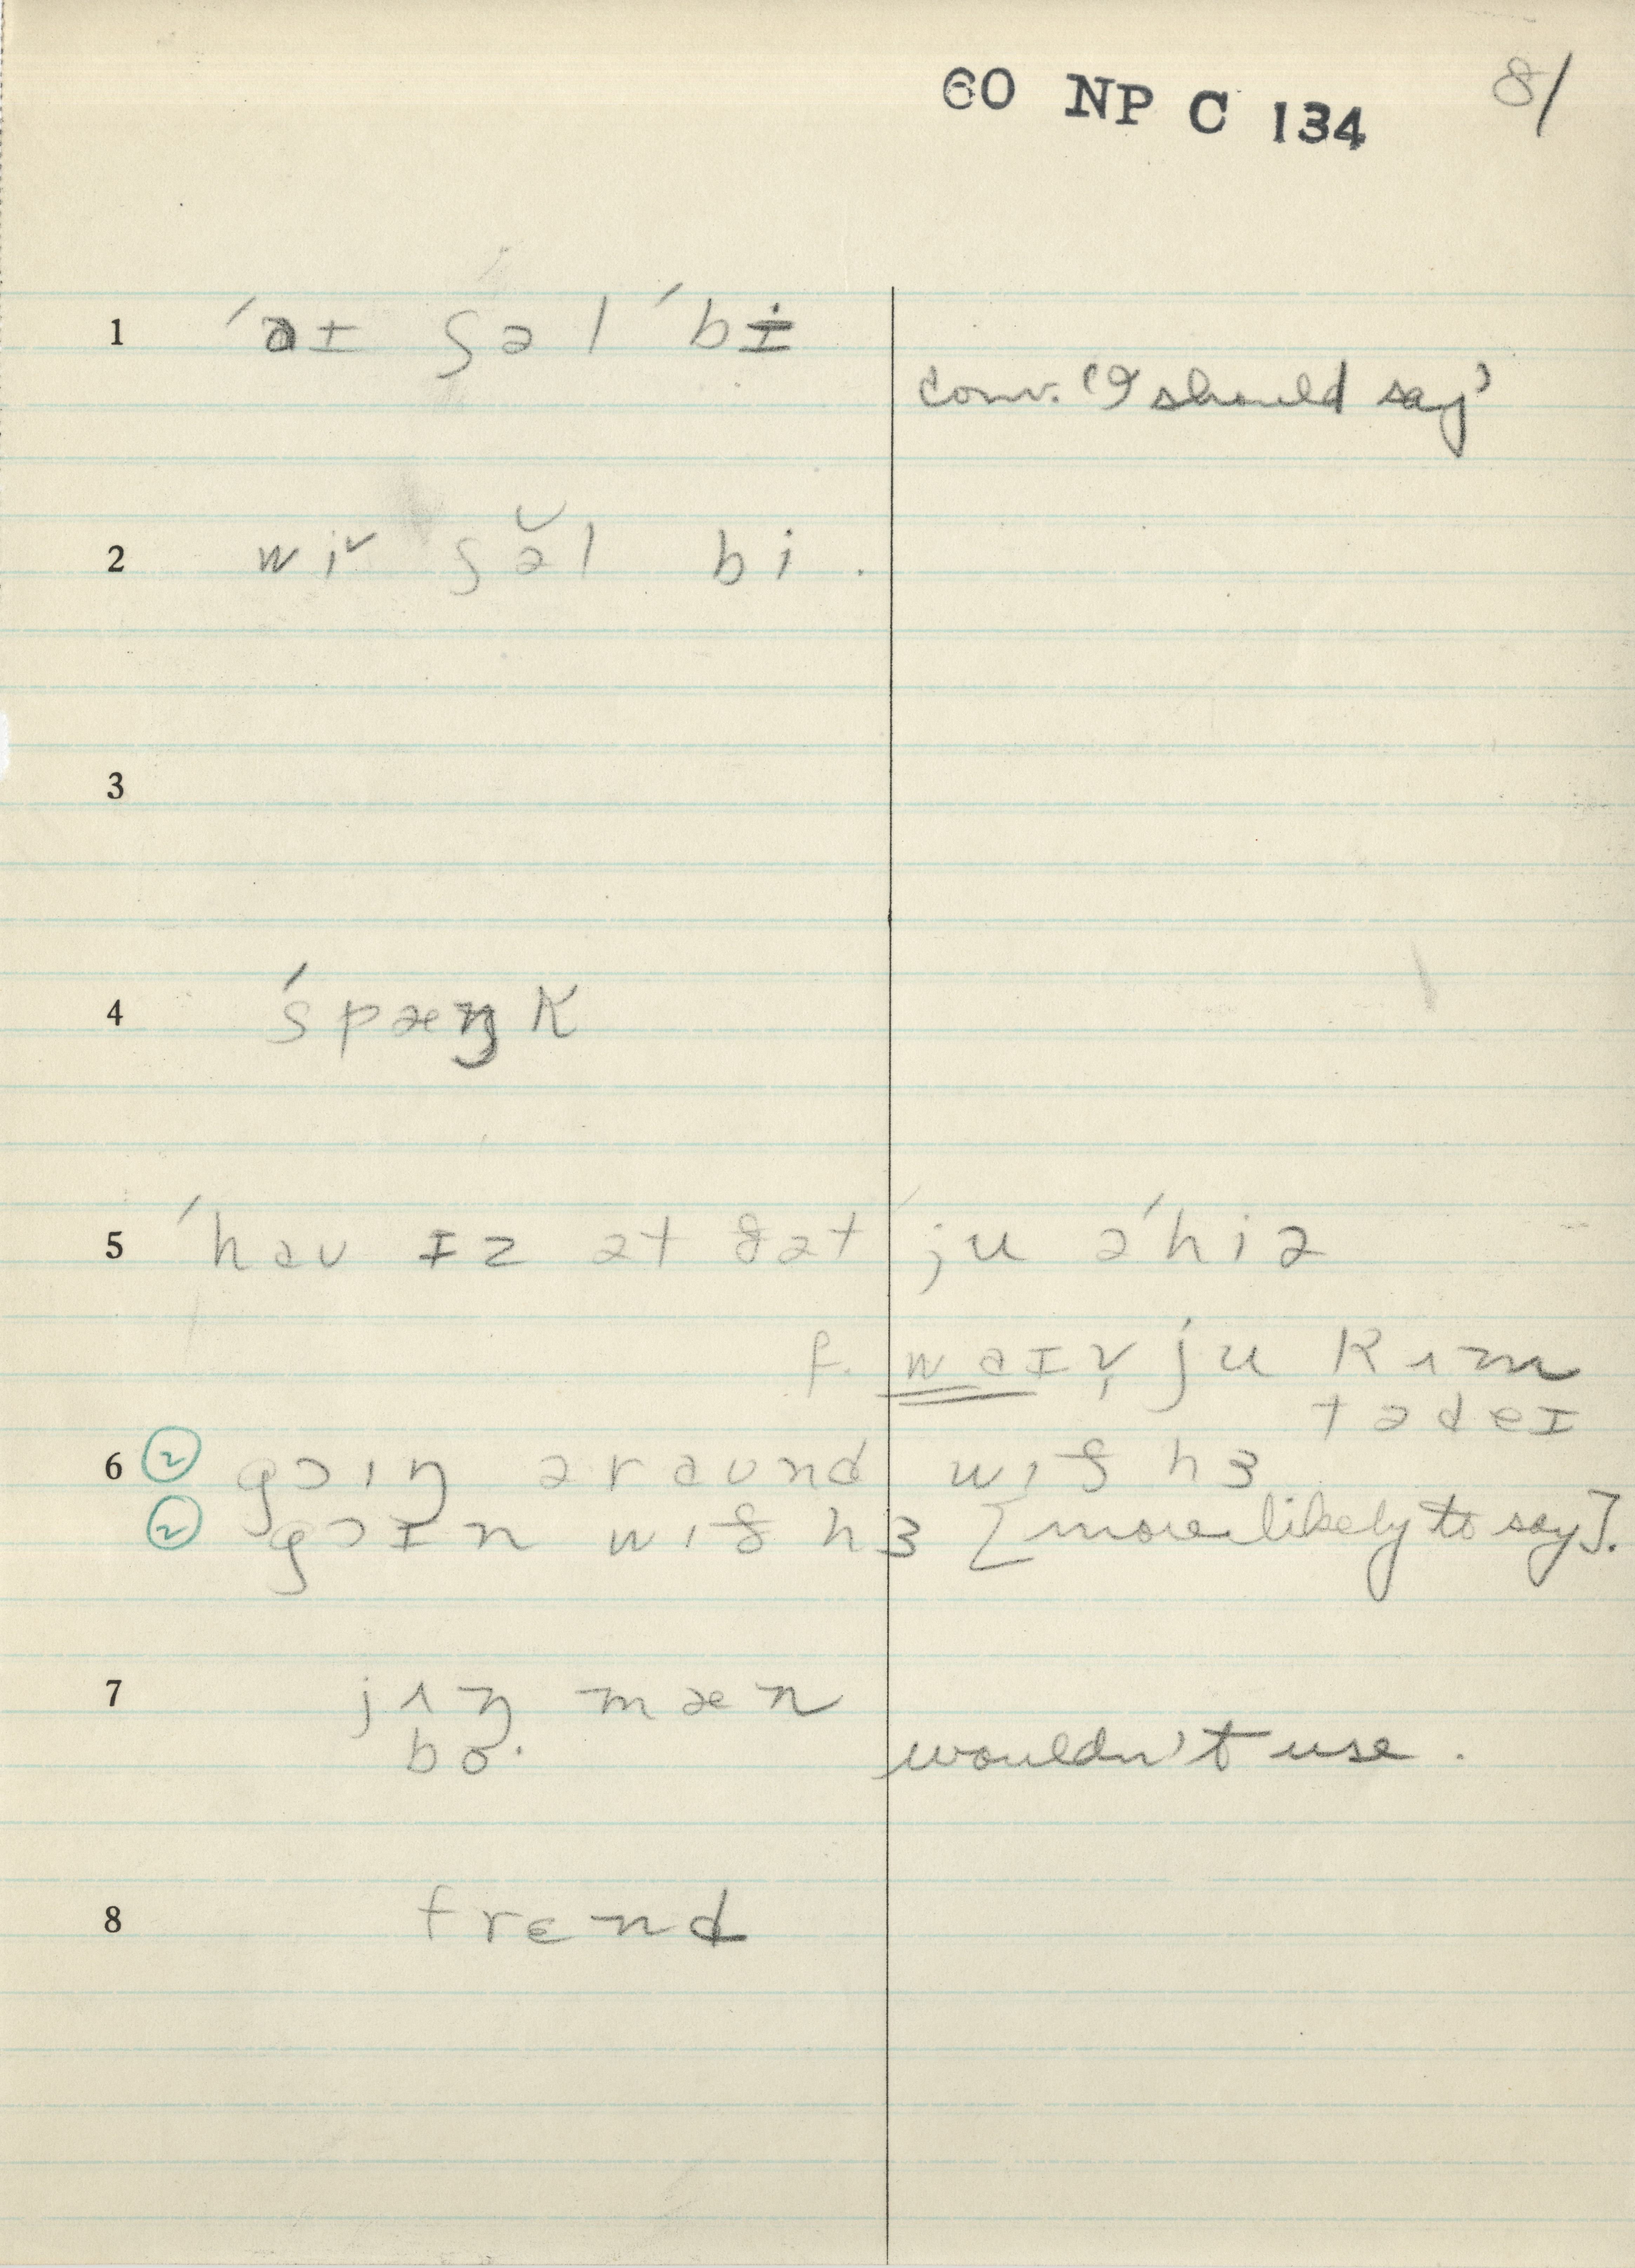 60 NP C 134 81
1 ˈaɪ ʃəl ˈbi
conv. 'I should say'
2 wi˅ ʃə̆l bi .
3
4 ˈspæŋk
5 ˈhaʊ ɪz ət ðət ju əˈhiə
f. waɪ ju kʌm
tədeɪ
6 ② goɪŋ əraʊnd wɪð hɜ
② goɪn wɪð hɜ [more likely to say].
7 jʌŋ mæn
bo. wouldn't use .
8 frɛnd